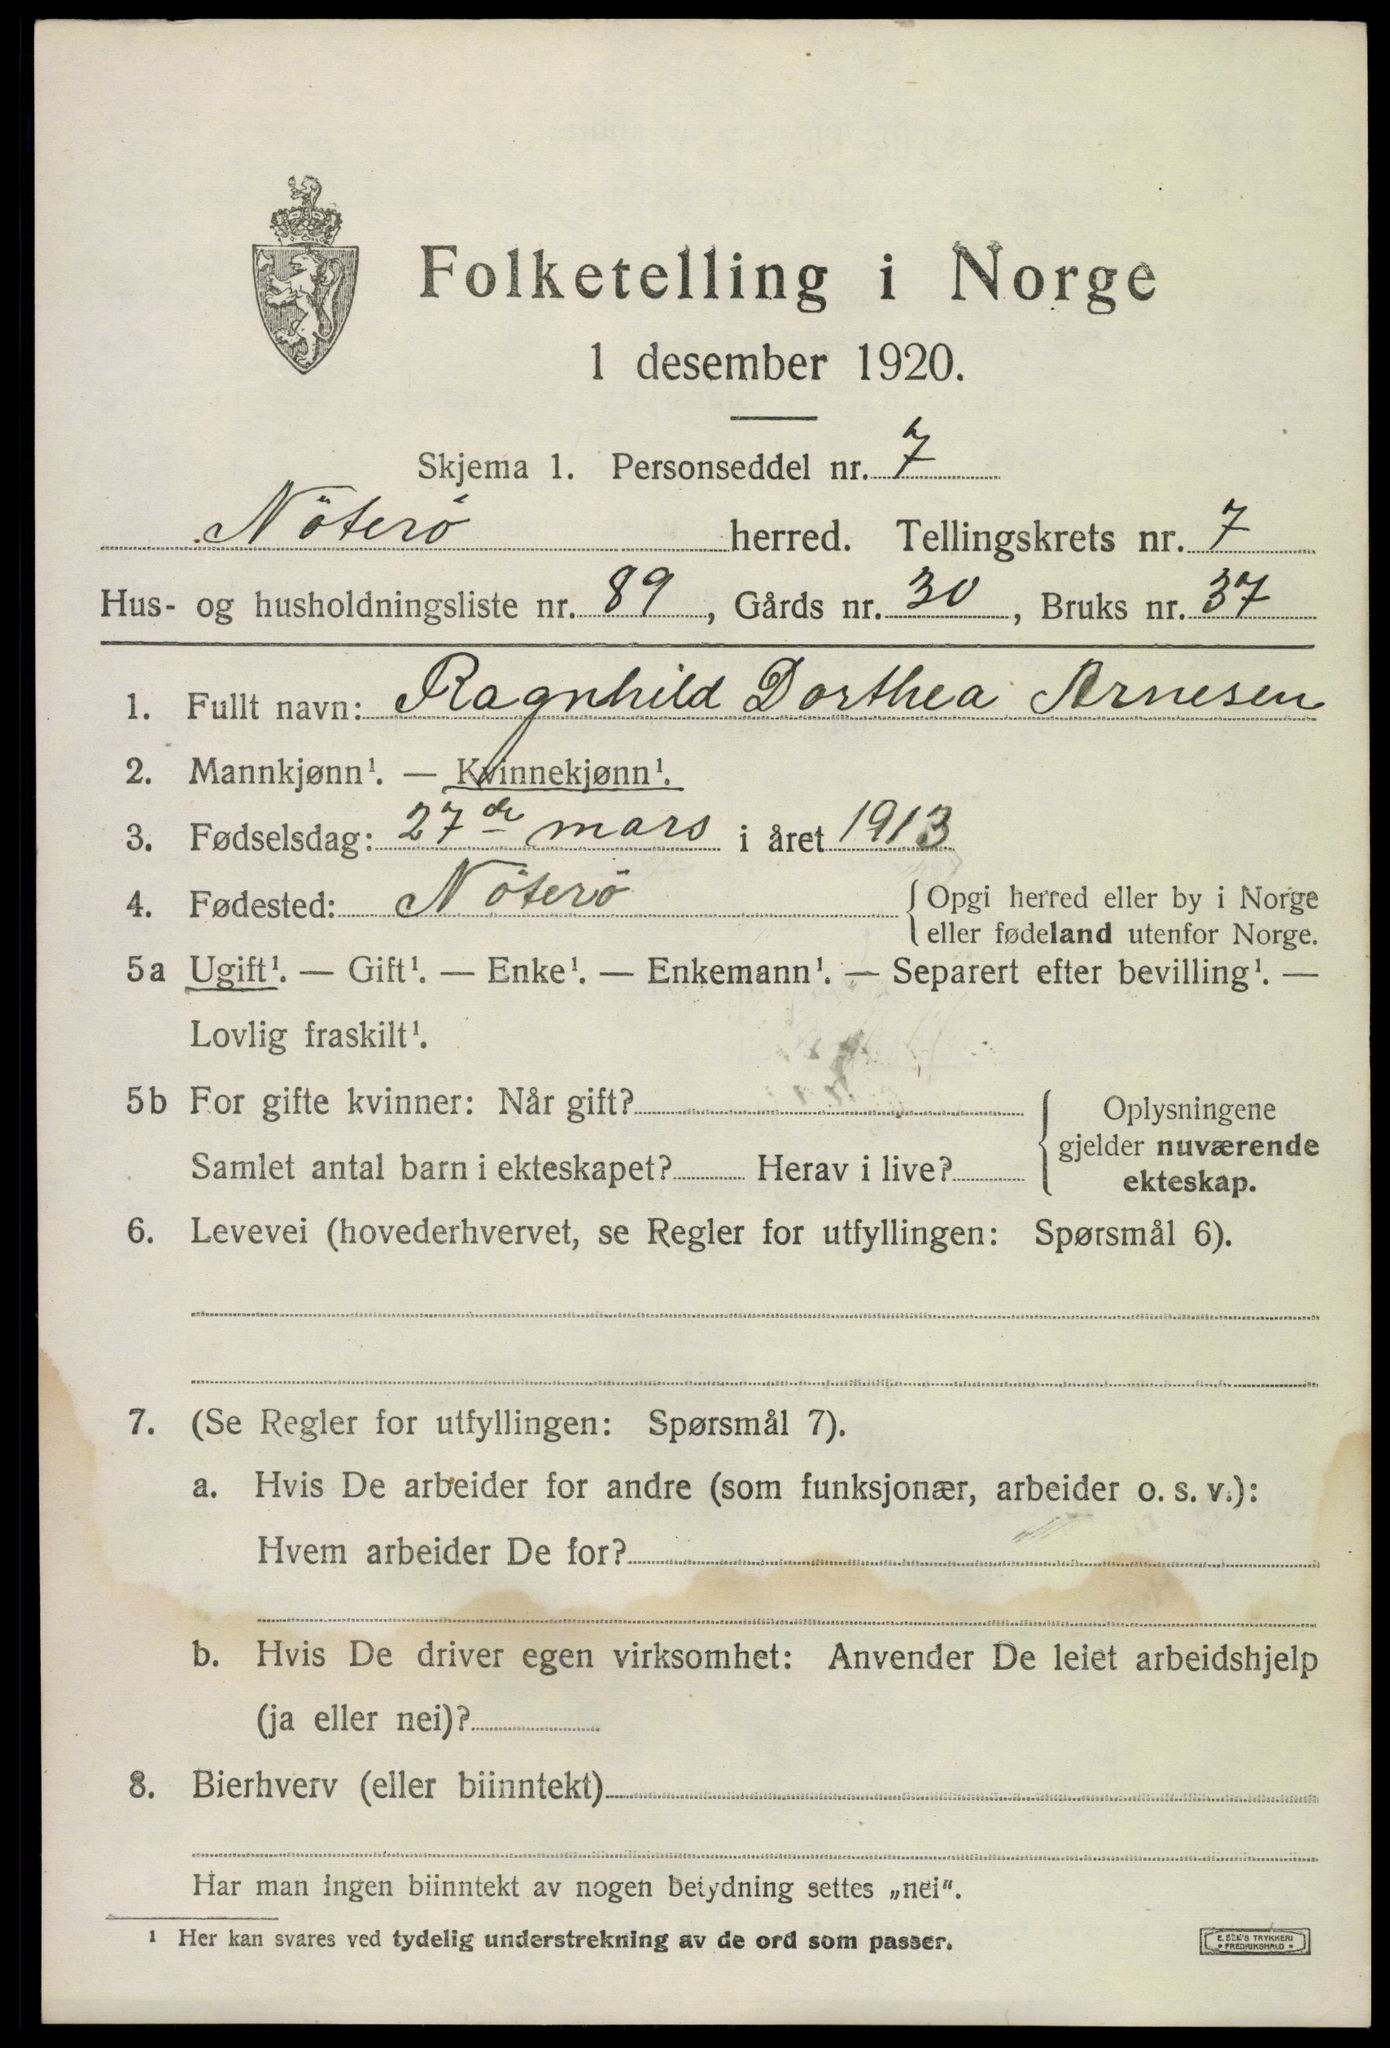 Folketelling i Norge
1 desember 1920.
Skjema 1. Personseddel nr. 7
Nöterö herred. Tellingskrets nr. 7
Hus- og husholdningsliste nr. 89, Gårds nr. 30, Bruks nr. 37
1. Fullt navn: Ragnhild Dorthea Arnesen
2. Mannkjønn¹. — Kvinnekjønn¹.
3. Fødselsdag: 27de mars i året 1913
4. Fødested: Nöterö { Opgi herred eller by i Norge
eller fødeland utenfor Norge.
5a Ugift¹. — Gift¹. — Enke¹. — Enkemann¹. — Separert efter bevilling¹. —
Lovlig fraskilt¹.
5b For gifte kvinner: Når gift?
Samlet antal barn i ekteskapet? Herav i live?
Oplysningene
gjelder nuværende
ekteskap.
6. Levevei (hovederhvervet, se Regler for utfyllingen: Spørsmål 6).
7. (Se Regler for utfyllingen: Spørsmål 7).
a. Hvis De arbeider for andre (som funksjonær, arbeider o. s. v.):
Hvem arbeider De for?
b. Hvis De driver egen virksomhet: Anvender De leiet arbeidshjelp
(ja eller nei)?
8. Bierhverv (eller biinntekt)
Har man ingen biinntekt av nogen betydning settes „nei“.
¹ Her kan svares ved tydelig understrekning av de ord som passer.
TRYKKERI
FREDRIKSHALD